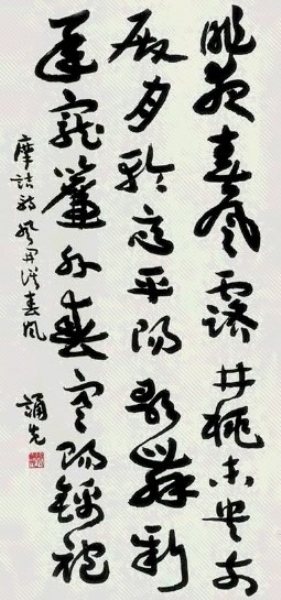 昨夜春風露井桃未央前
殿月輪高平陽歌舞新
承寵簾外春寒賜錦袍
摩詰詩風開誤春風
誦先